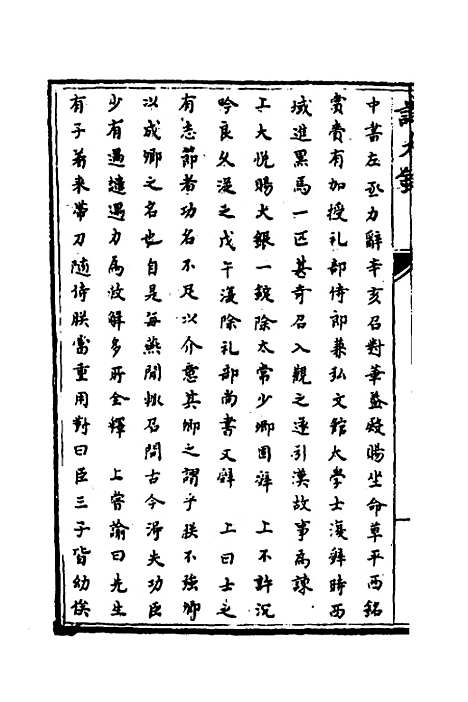 中書左丞力辭辛亥召對華蓋殿賜坐命草平西銘
賞賚有加授礼部侍郎兼弘文館大學士復辭時西
域進黑馬一匹甚奇召入觀之遂引漢故事為諫
上大悦賜犬銀一錠除太常少卿固辭　上不許沉
吟良久從之戊午復除礼部尚書又辭　上曰士之
有志節者功名不足以介意其卿之謂乎朕不強卿
以成卿之名也自是每燕閒輒召問古今得失功臣
少有過譴遇力為救解多所全釋　上嘗諭曰先生
有子若來帶刀隨侍朕當重用對曰臣三子皆幼俟